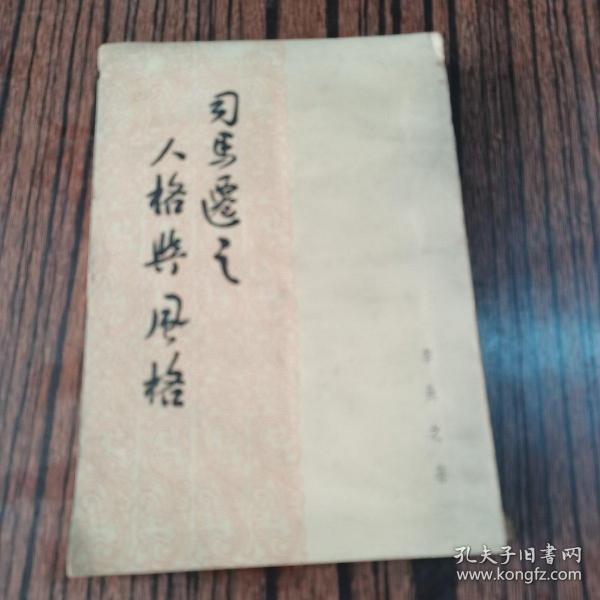 司馬遷之
人格與風格
李長之著
孔夫子旧書网
www.kongfz.com